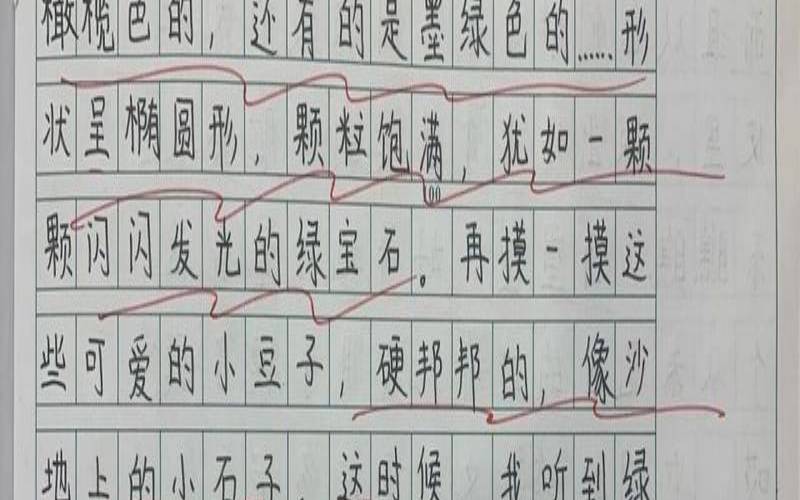 橄榄色的，还有的是墨绿色的……形
状呈椭圆形，颗粒饱满，犹如一颗
100
颗闪闪发光的绿宝石。再摸一摸这
些可爱的小豆子，硬邦邦的，像沙
地上的小石子，这时候，我听到绿